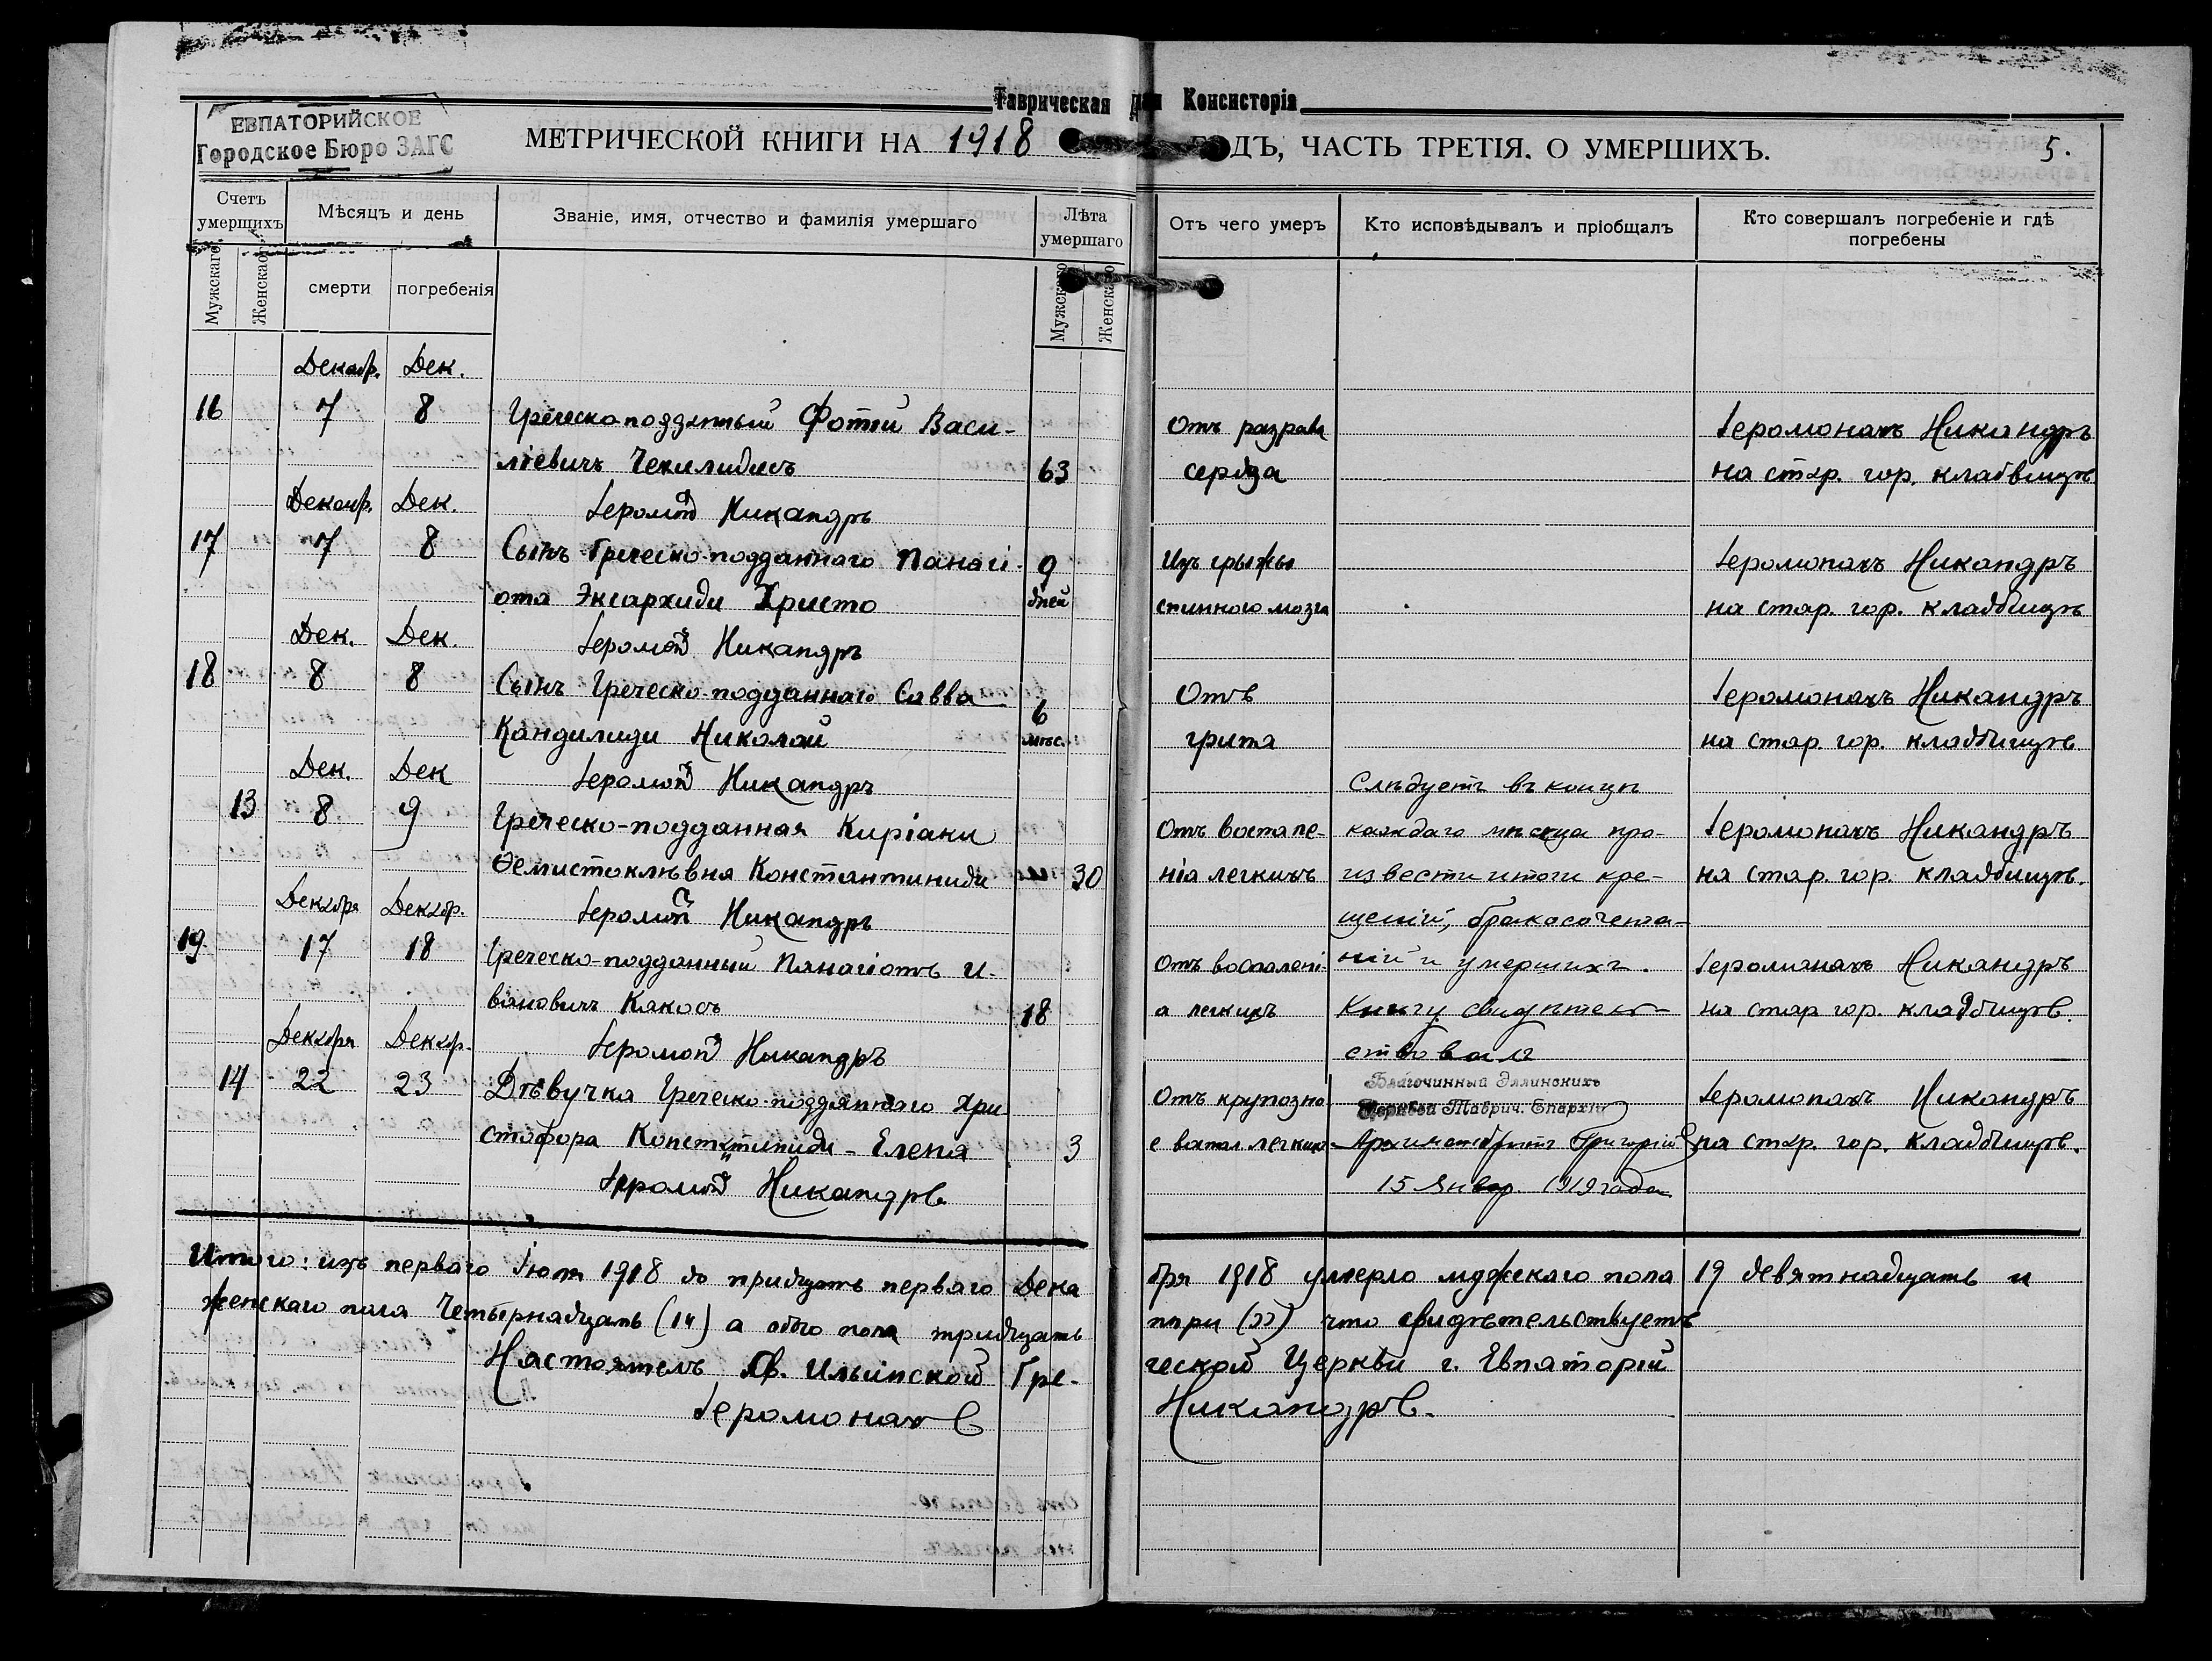 Таврическая Консисторія
ЕВПАТОРИЙСКОЕ
Городское Бюро ЗАГС
МЕТРИЧЕСКОЙ КНИГИ НА 1918 ГОДЪ, ЧАСТЬ ТРЕТІЯ. О УМЕРШИХЪ. 5.
Счетъ умершихъ
Мѣсяцъ и день
Званіе, имя, отчество и фамилія умершаго
Лѣта умершаго
Отъ чего умеръ
Кто исповѣдывалъ и пріобщалъ
Кто совершалъ погребеніе и гдѣ погребены
Мужскаго Женскаго смерти погребенія Мужскаго Женскаго
Декабр. Дек.
16 7 8 Греческоподданный Фотій Васи- Отъ разрава Іеромонахъ Никандръ
ліевичъ Чекилидисъ 63 сердца на стар. гор. кладбищѣ
Декабр. Дек. Іеромон Никандръ
17 7 8 Сынъ Греческо-подданнаго Панагі- 9 Изъ грыжы Іеромонахъ Никандръ
ота Эксархиди Христо дней спинного мозга на стар. гор. кладбищѣ
Дек. Дек. Іеромон Никандръ
18 8 8 Сынъ Греческо-подданнаго Савва 6 Отъ Іеромонахъ Никандръ
Кандилиди Николай мѣс. грипа на стар. гор. кладбищѣ
Дек. Дек Іеромон Никандръ Слѣдуетъ въ концѣ
13 8 9 Греческо-подданная Киріаки Отъ воспале- каждаго мѣсяца про- Іеромонахъ Никандръ
Ѳемистоклѣвна Константиниди 30 нія легкихъ извести итоги кре- на стар. гор. кладбищѣ.
Декабря Декабр. Іеромон Никандръ щеній, бракосочета-
19 17 18 Греческо-подданный Панагіотъ И- Отъ воспалені- ній и умершихъ. Іеромонахъ Никандръ
вановичъ Какосъ 18 а легкихъ Книгу свидѣтель- на стар гор. кладбищѣ.
Декабря Декабр. Іеромон Никандръ ствовалъ
Благочинный Эллинскихъ
14 22 23 Дѣвучка Греческо-подданнаго Хри Отъ крупозно Церквей Таврич. Епархіи Іеромонахъ Никандръ
стофора Константиниди - Елена 3 е воспал. легкихъ Архимандритъ Григорій на стар. гор. кладбищѣ.
Іеромон Никандръ 15 Январ. 1919 года
Итого: изъ перваго Іюля 1918 до тридцать перваго Дека бря 1918 умерло мужскаго пола 19 девятнадцать и
женскаго пола Четырнадцать (14) а обоего пола тридцать три (33) что свидѣтельствуетъ
Настоятель Св. Ильинской Гре- ческой Церкви г. Евпаторіи
Іеромонахъ Никандръ.